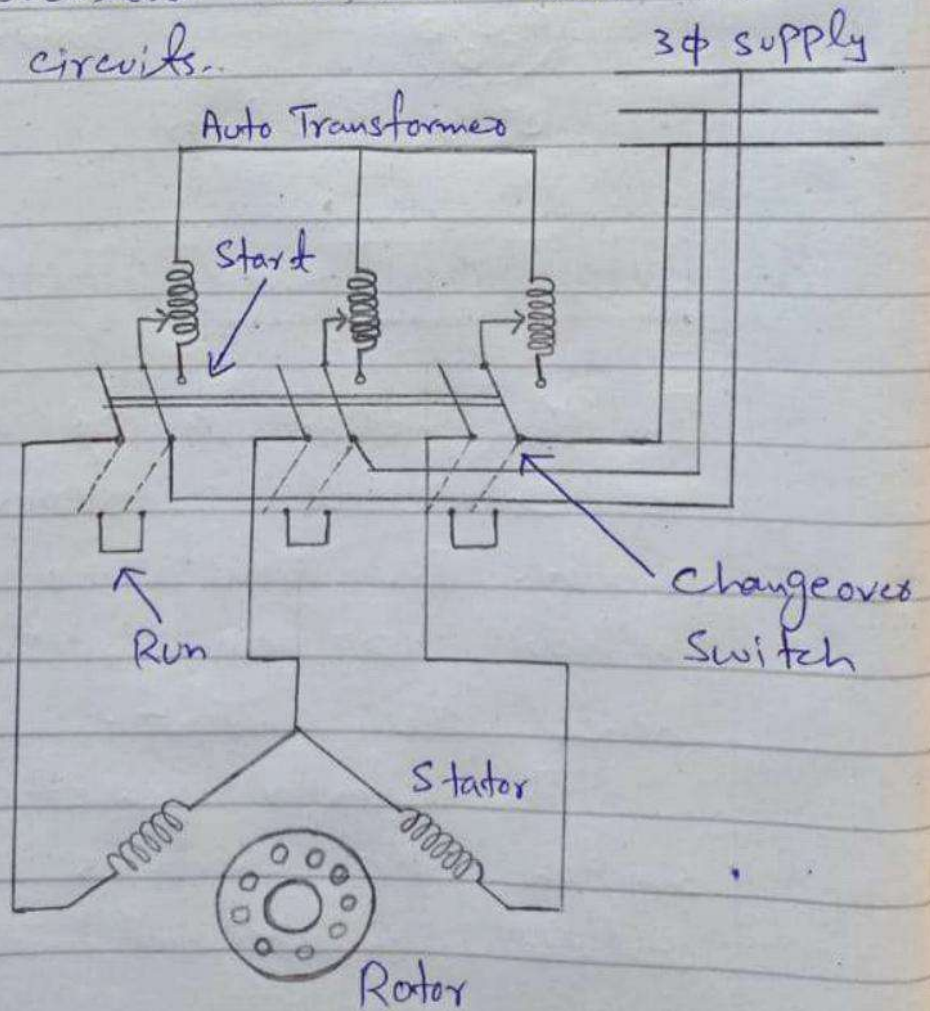 circuits..
3ϕ supply
Auto Transformer
Start
Changeover
Switch
Run
Stator
Rotor